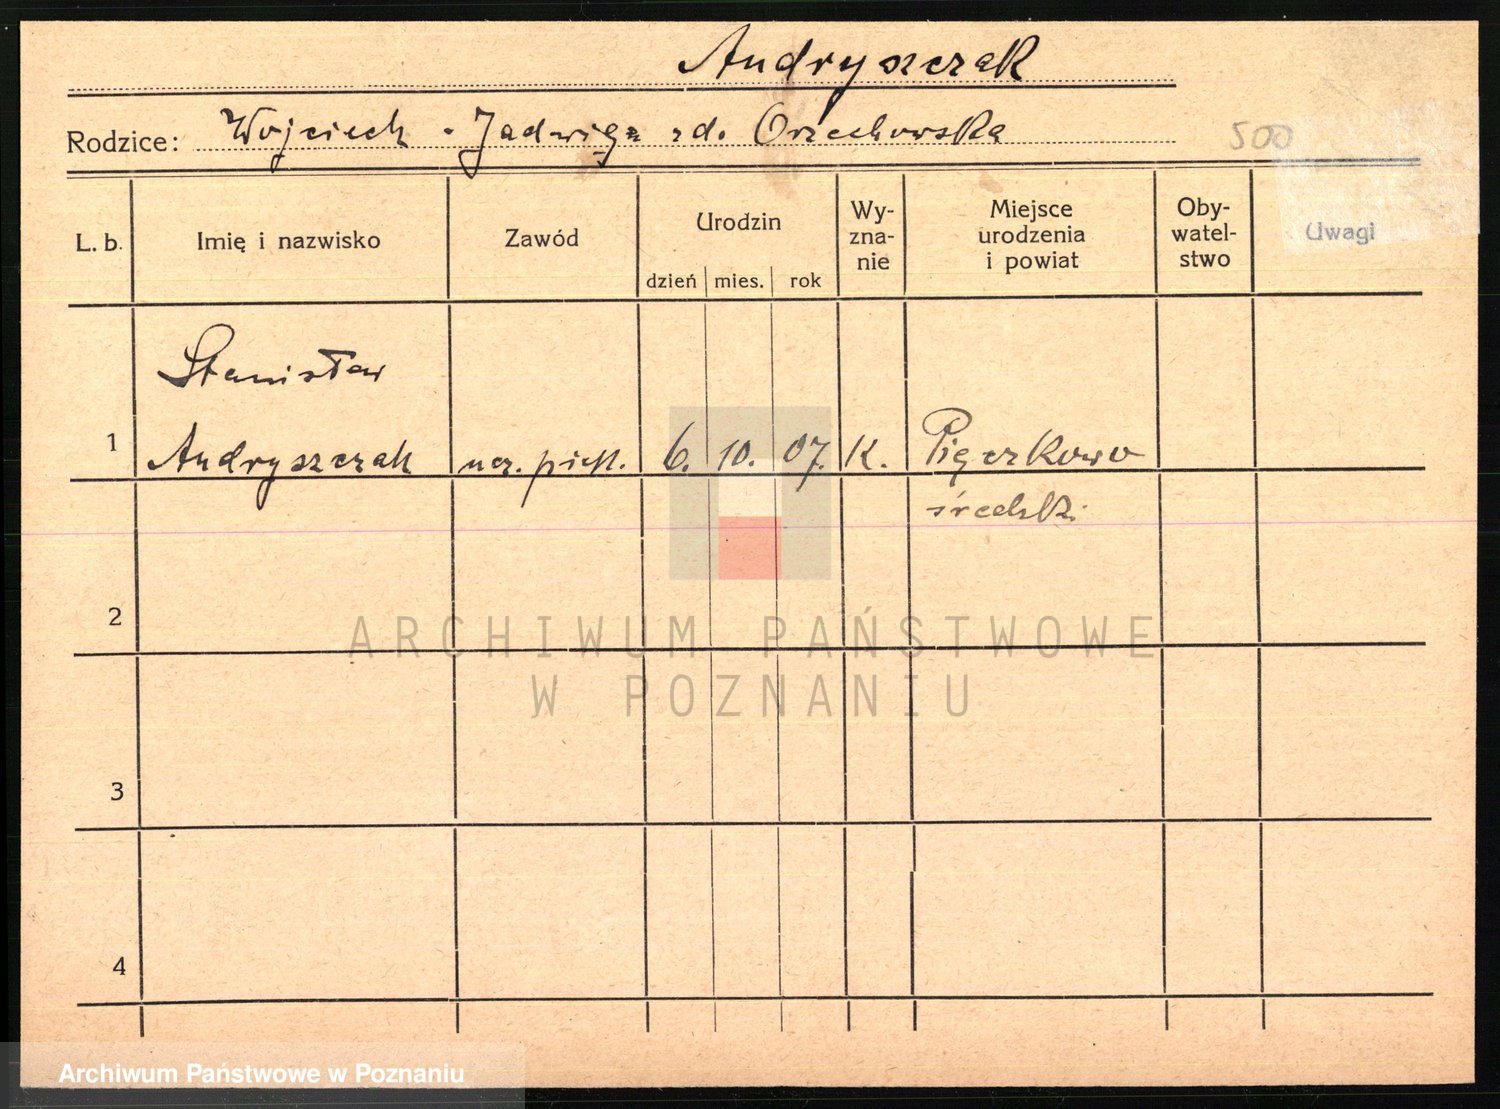 Andryszczak
Rodzice: Wojciech - Jadwiga zd. Orzechowska
500
L. b.
Imię i nazwisko
Zawód
Urodzin
dzień
mies.
rok
Wy-
zna-
nie
Miejsce
urodzenia
i powiat
Oby-
watel-
stwo
Uwagi
Stanisław
1 Andryszczak ucz. piek. 6. 10. 07. K. Pięczkowo
średzki
2
ARCHIWUM PAŃSTWOWE
W POZNANIU
3
4
Archiwum Państwowe w Poznaniu